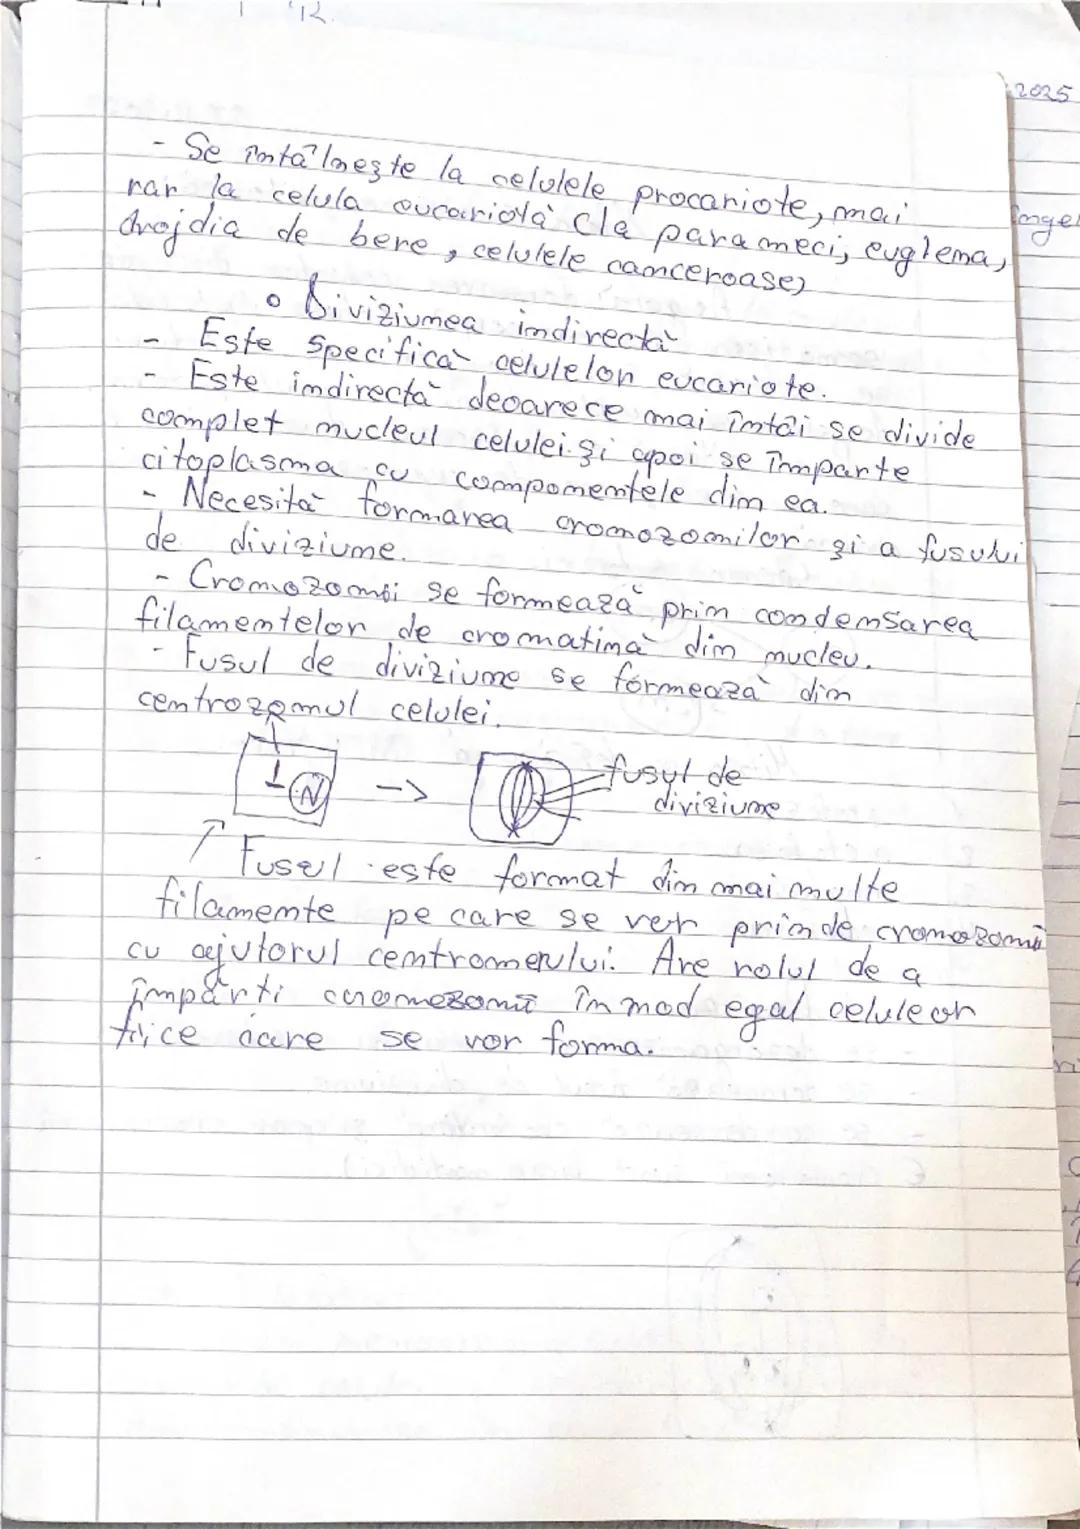 2025
- Se întâlnește la celulele procariote, mai
rar la celula eucariotă (la parameci, euglena,
drojdia de bere, celulele canceroase)
o Diviziunea indirectă
- Este specifică celulelor eucariote.
- Este indirectă deoarece mai întâi se divide
complet nucleul celulei și apoi se împarte
citoplasma cu componentele din ea.
- Necesită formarea cromozomilor și a fusului
de diviziune.
- Cromozomii se formează prin condensarea
filamentelor de cromatină din nucleu.
- Fusul de diviziune se formează din
centrozomul celulei.
N -> fusul de
diviziune
Fusul este format din mai multe
filamente pe care se vor prinde cromozomii
cu ajutorul centromerului. Are rolul de a
împărți cromozomii în mod egal celuleor
fiice care se vor forma.